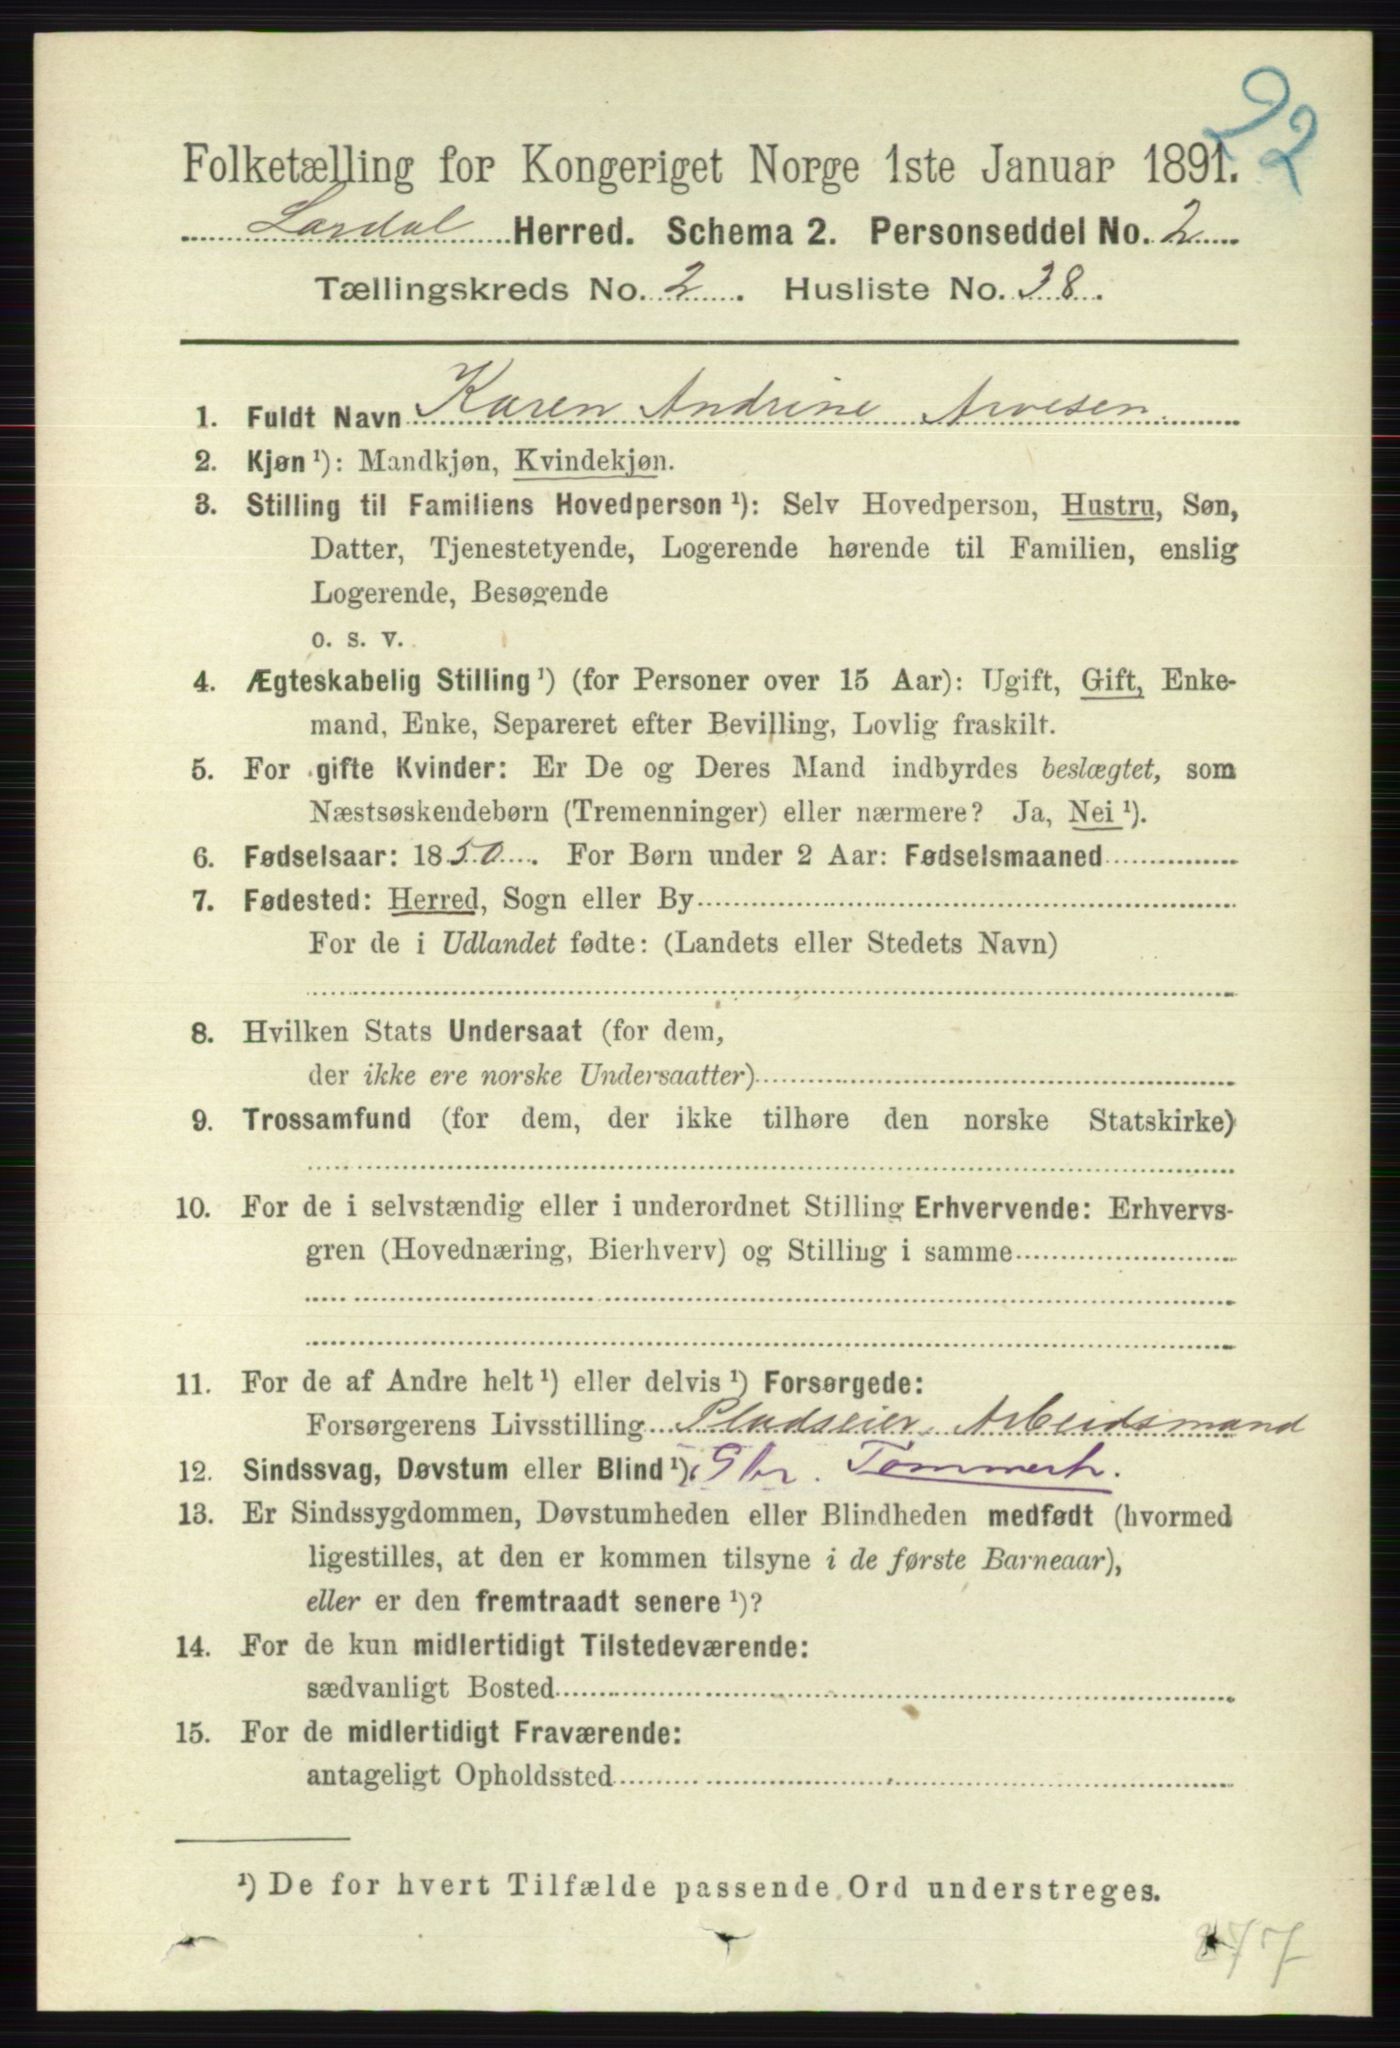 22
Folketælling for Kongeriget Norge 1ste Januar 1891.
Lardal Herred. Schema 2. Personseddel No. 2
Tællingskreds No. 2. Husliste No. 38.
1. Fuldt Navn Karen Andrine Arvesen
2. Kjøn ¹): Mandkjøn, Kvindekjøn.
3. Stilling til Familiens Hovedperson ¹): Selv Hovedperson, Hustru, Søn,
Datter, Tjenestetyende, Logerende hørende til Familien, enslig
Logerende, Besøgende
o. s. v.
4. Ægteskabelig Stilling ¹) (for Personer over 15 Aar): Ugift, Gift, Enke-
mand, Enke, Separeret efter Bevilling, Lovlig fraskilt.
5. For gifte Kvinder: Er De og Deres Mand indbyrdes beslægtet, som
Næstsøskendebørn (Tremenninger) eller nærmere? Ja, Nei ¹).
6. Fødselsaar: 1850. For Børn under 2 Aar: Fødselsmaaned
7. Fødested: Herred, Sogn eller By
For de i Udlandet fødte: (Landets eller Stedets Navn)
8. Hvilken Stats Undersaat (for dem,
der ikke ere norske Undersaatter)
9. Trossamfund (for dem, der ikke tilhøre den norske Statskirke)
10. For de i selvstændig eller i underordnet Stilling Erhvervende: Erhvervs-
gren (Hovednæring, Bierhverv) og Stilling i samme
11. For de af Andre helt ¹) eller delvis ¹) Forsørgede:
Forsørgerens Livsstilling Pladseier, Arbeidsmand
12. Sindssvag, Døvstum eller Blind ¹). Gbr. Tømmerh.
13. Er Sindssygdommen, Døvstumheden eller Blindheden medfødt (hvormed
ligestilles, at den er kommen tilsyne i de første Barneaar),
eller er den fremtraadt senere ¹)?
14. For de kun midlertidigt Tilstedeværende:
sædvanligt Bosted
15. For de midlertidigt Fraværende:
antageligt Opholdssted
¹) De for hvert Tilfælde passende Ord understreges.